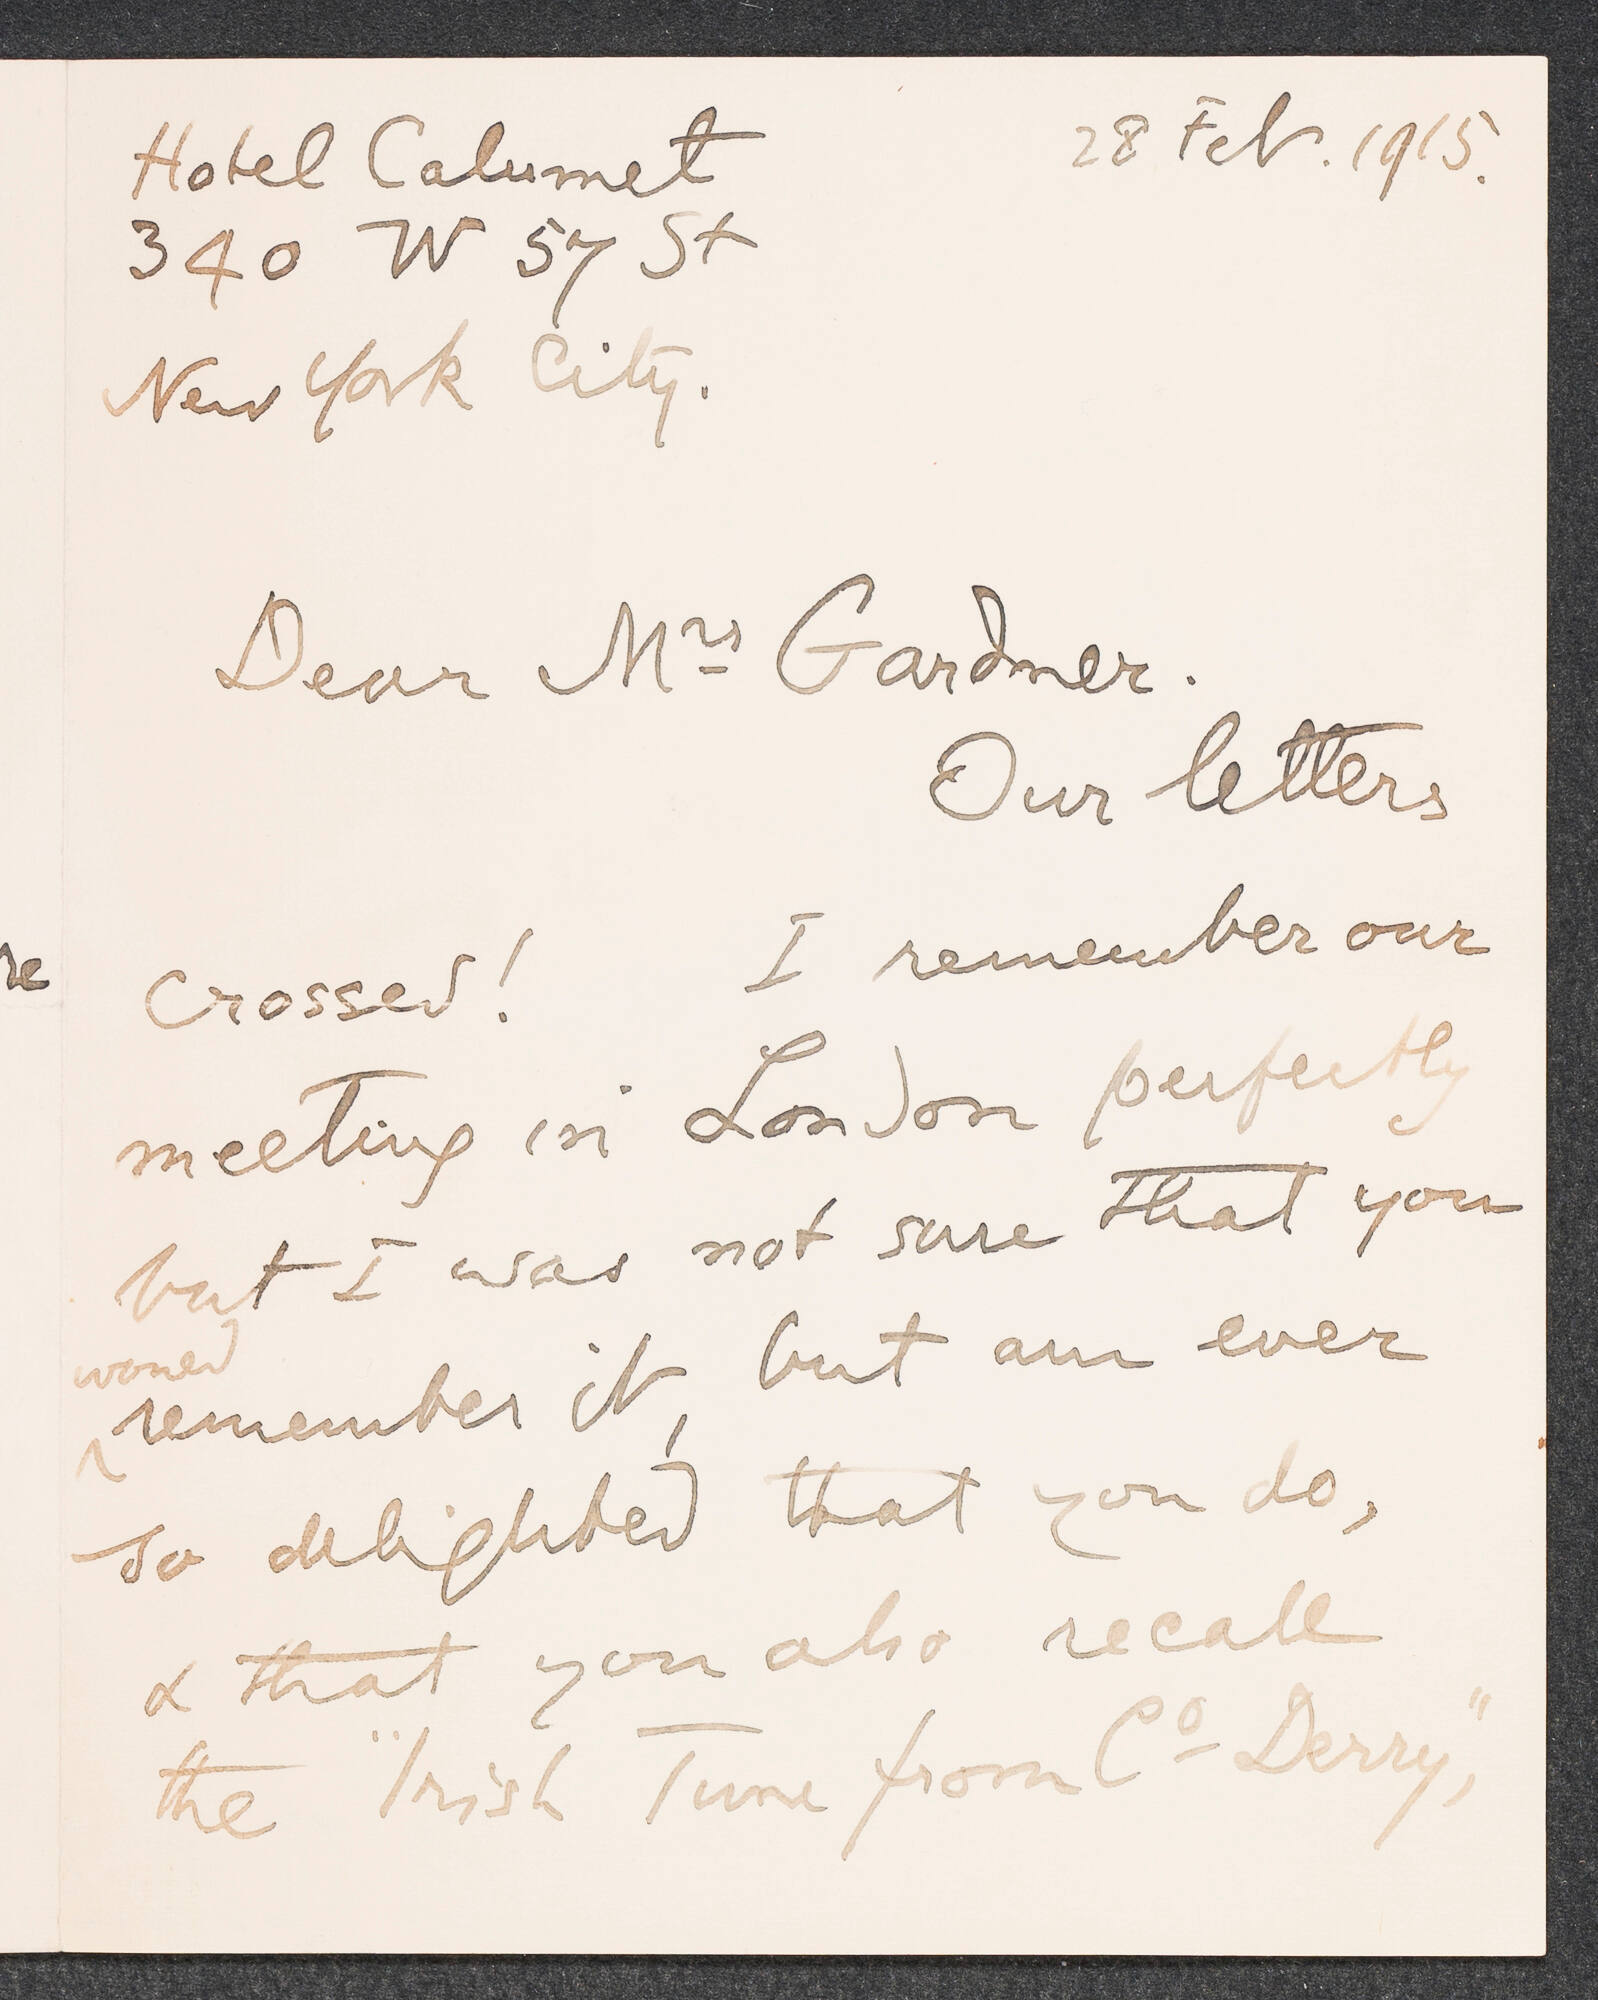 Hotel Calumet
28 Feb. 1915.
340 W 57 St
New York City.
Dear Mrs Gardner.
Our letters
crossed! I remember our
meeting in London perfectly
but I was not sure that you
would
remember it, but am ever
so delighted that you do,
& that you also recall
the "Irish Tune from Co Derry",
re